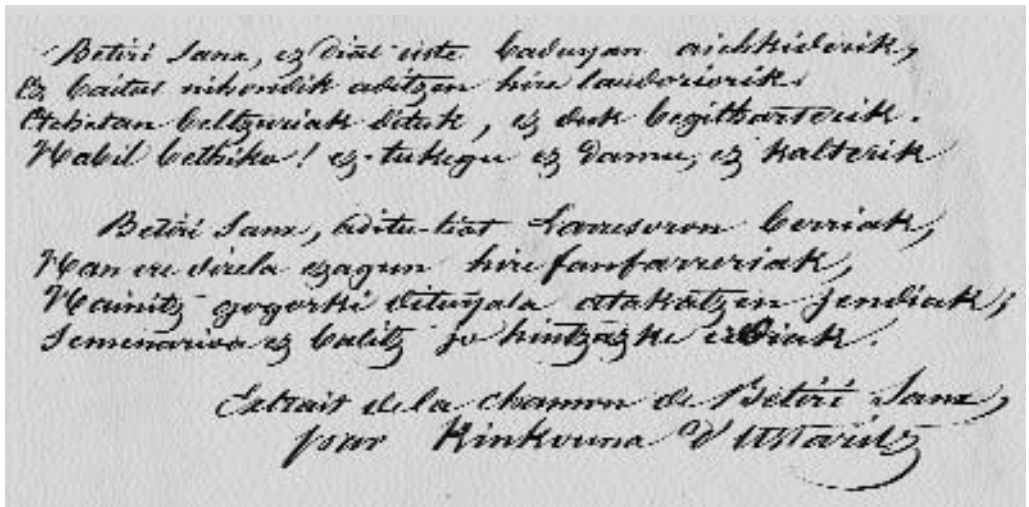 Betiri Sanz, ez diat uste baduyan aichkiderik,
Ez baitut nihondik aditzen hire laudoriorik.
Etchetan beltzuriak dituk, ez duk begitharterik.
Habil bethiko! ez-tukegu ez damu, ez kalterik
Betiri Sanz, aditu-tiat Larresoron berriak,
Han ere direla ezagun hire fanfarreriak,
Hainitz gogorki dituyala atakatzen jendiak;
Semenarioa ez balitz jo hintzazke erdiak.
Extrait de la chanson de Betiri Sanz,
par Kinkouna d'Ustaritz